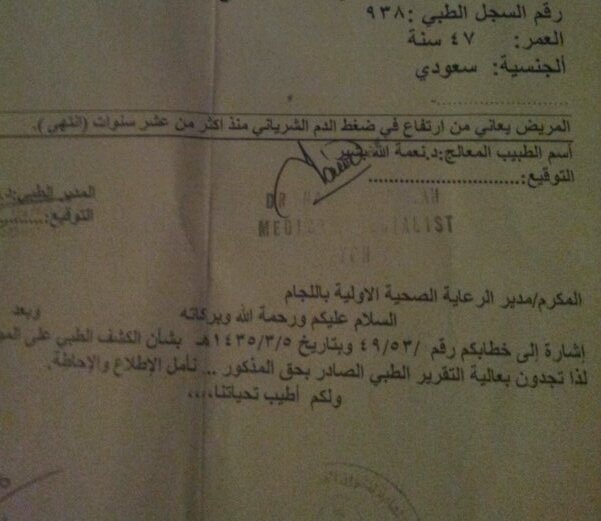 رقم السجل الطبي :٩٣٨
العمر: ٤٧ سنة
الجنسية: سعودي
المريض يعاني من ارتفاع في ضغط الدم الشرياني منذ اكثر من عشر سنوات (انتهى).
اسم الطبيب المعالج:د.نعمة الله بشير
التوقيع:..............................
المدير الطبي:د.
التوقيع:..........
DR
MEDICAL SPECIALIST
المكرم/مدير الرعاية الصحية الاولية باللجام
السلام عليكم ورحمة الله وبركاته وبعد
إشارة إلى خطابكم رقم /٤٩/٥٣ وبتاريخ ١٤٣٥/٣/٥هـ بشأن الكشف الطبي على
لذا تجدون بعالية التقرير الطبي الصادر بحق المذكور .. نأمل الإطلاع والإحاطة.
ولكم أطيب تحياتنا،،،،